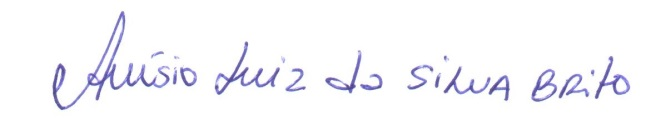 Anísio Luiz da SiLVA BRito